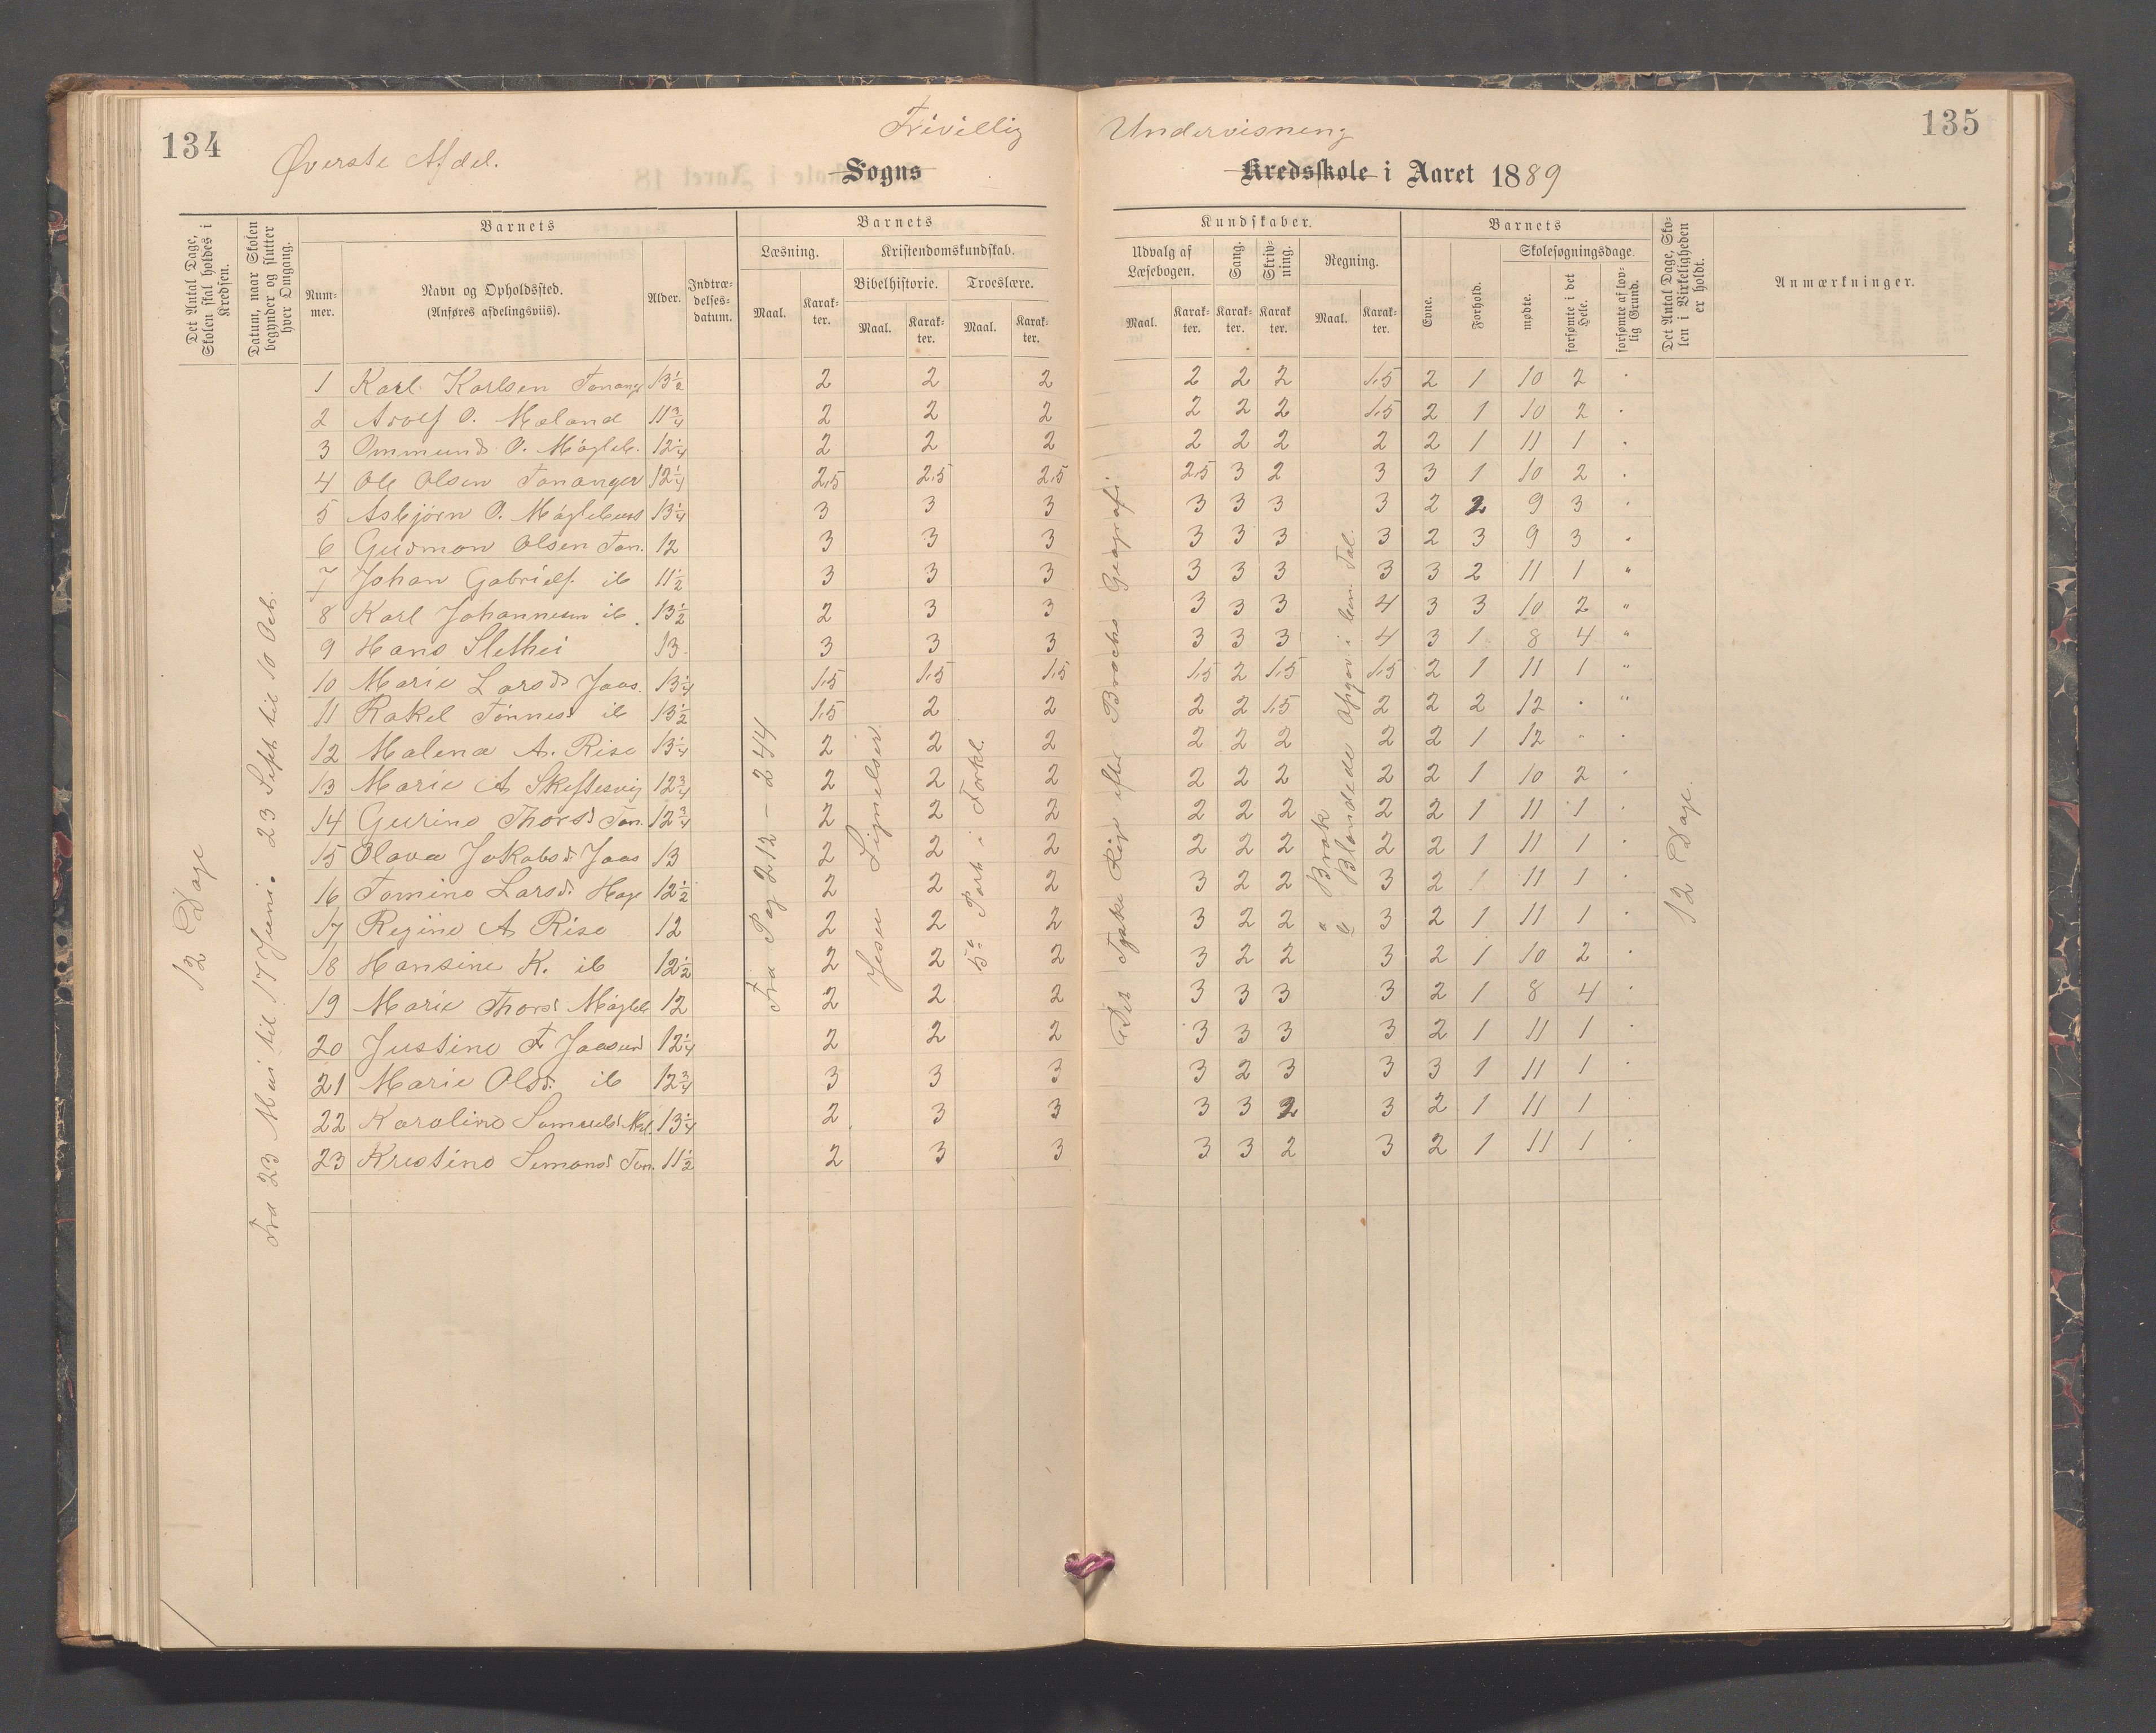 134
135
Frivillig Undervisning
Øverste Afdel.
Sogns Kredsskole i Aaret 1889
Det Antal Dage, Skolen skal holdes i Kredsen.
Datum, naar Skolen begynder og slutter hver Omgang.
Barnets
Nummer.
Navn og Opholdssted. (Anføres afdelingsviis).
Alder.
Indtrædelsesdatum.
Barnets
Læsning.
Maal.
Karakter.
Kristendomskundskab.
Bibelhistorie.
Maal.
Karakter.
Troeslære.
Maal.
Karakter.
Kundskaber.
Udvalg af Læsebogen.
Maal.
Karakter.
Sang.
Karakter.
Skrivning.
Karakter.
Regning.
Maal.
Karakter.
Barnets
Evne.
Forhold.
Skolesøgningsdage.
mødte.
forsømte i det Hele.
forsømte af lovlig Grund.
Det Antal Dage, Skolen i Virkeligheden er holdt.
Anmærkninger.
12 Dage
Fra 23 Mai til 17 Juni. 23 Sept til 10 Oct.
Fra Pag 212 – 244
Jesu Lignelser
5te Part i Forkl.
Det Tyske Rige efter Brochs Geografi
a Brøk
Blandede Opgav. i ben. Tal.
12 Dage.
1 Karl Karlsen Tananger 13½ 2 2 2 2 2 2 1,5 2 1 10 2 .
2 Adolf O. Mæland 11¾ 2 2 2 2 2 2 1,5 2 1 10 2 .
3 Ommund O. Mögleb. 12¼ 2 2 2 2 2 2 2 2 1 11 1 .
4 Ole Olsen Tananger 12¼ 2,5 2,5 2,5 2,5 3 2 3 3 1 10 2 .
5 Asbjörn O. Möglebust 13¼ 3 3 3 3 3 3 3 2 2 9 3 .
6 Gudmon Olsen Tan. 12 3 3 3 3 3 3 3 2 3 9 3 .
7 Johan Gabriels. ib 11½ 3 3 3 3 3 3 3 3 2 11 1 "
8 Karl Johannesen ib. 13½ 2 3 3 3 3 3 4 3 3 10 2 "
9 Hans Slethei 13 3 3 3 3 3 3 4 3 1 8 4 "
10 Marie Larsd. Jaas. 13¼ 1,5 1,5 1,5 1,5 2 1,5 1,5 2 1 11 1 "
11 Rakel Tönnesd. ib 13½ 1,5 2 2 2 2 1,5 2 2 2 12 . "
12 Malena A. Risa 13¼ 2 2 2 2 2 2 2 2 1 12 . .
13 Marie A Skeftesvig 12¾ 2 2 2 2 2 2 2 2 1 10 2 .
14 Gurine Thorsd Tan. 12¾ 2 2 2 2 2 2 2 2 1 11 1 .
15 Olava Jakobsd. Jaas 13 2 2 2 2 2 2 2 2 1 11 1 .
16 Tomine Larsd. Hage 12½ 2 2 2 3 2 2 3 2 1 11 1 .
17 Regine A Risa 12 2 2 2 3 2 2 3 2 1 11 1 .
18 Hansine K. ib 12½ 2 2 2 3 2 2 3 2 1 10 2 .
19 Marie Thorsd Mögleb 12 2 2 2 3 3 3 3 2 1 8 4 .
20 Justine T Jaasund 12¼ 2 2 2 3 3 3 3 2 1 11 1 .
21 Marie Olsd. ib 12¾ 3 3 3 3 2 3 3 3 1 11 1 .
22 Karoline Samuelsd Mæl. 13¼ 2 3 3 3 3 2 3 2 1 11 1
23 Kristine Simonsd Tan. 11½ 2 3 3 3 3 2 3 2 1 11 1 .